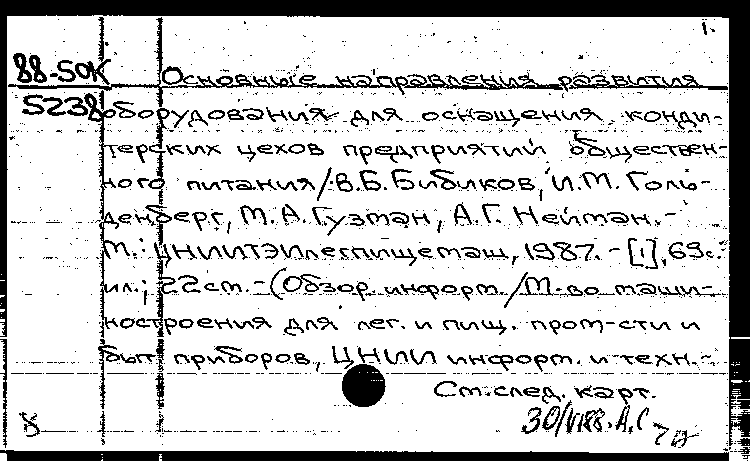 1.
88-50К Основные направления развития
5238 оборудования для оснащения конди-
терских цехов предприятий обществен-
ного питания/В.Б.Бибиков, И.М. Голь-
денберг, М.А.Гузман, А.Г. Нейман.-
М.: ЦНИИТЭИлегпищемаш, 1987. - [1], 69с.:
ил.; 22см. - (Обзор. информ. /М-во маши-
ностроения для лег. и пищ. пром-сти и
быт. приборов, ЦНИИ информ. и техн.-
См.след. карт.
30/VI88. А,С